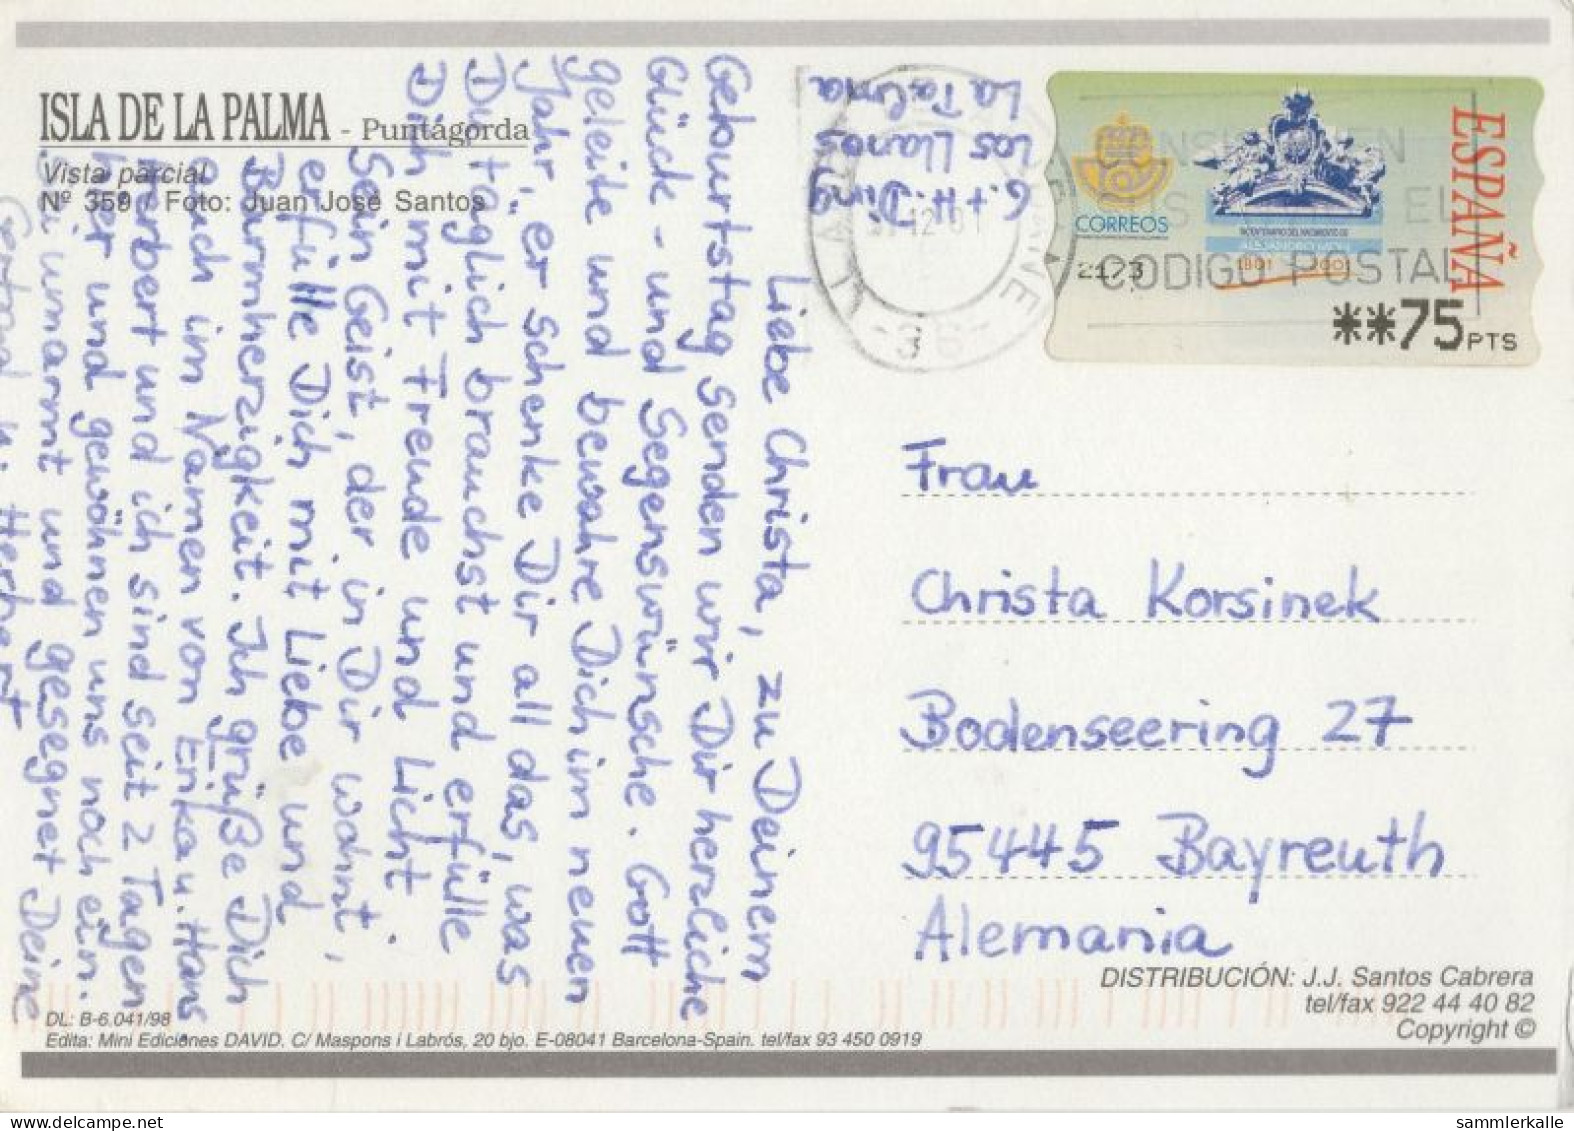 ISLA DE LA PALMA - Puntagorda
Vista parcial
Nº 359 / Foto: Juan José Santos
G. + H. Ding
Los Llanos
La Palma
Liebe Christa, zu Deinem
Geburtstag senden wir Dir herzliche
Glück - und Segenswünsche. Gott
geleite und bewahre Dich im neuen
Jahr, er schenke Dir all das, was
Du täglich brauchst und erfülle
Dich mit Freude und Licht.
Sein Geist, der in Dir wohnt,
erfülle Dich mit Liebe und
Barmherzigkeit. Ich grüße Dich
auch im Namen von Erika u. Hans.
Herbert und ich sind seit 2 Tagen
hier und gewöhnen uns noch ein.
Sei umarmt und gesegnet Deine
Gertrud u. Herbert
CORREOS
ALEJANDRO MON
1801 2001
ESPAÑA
2173
**75 PTS
CODIGO POSTAL
12 01
-38-
Frau
Christa Korsinek
Bodenseering 27
95445 Bayreuth
Alemania
DISTRIBUCIÓN: J.J. Santos Cabrera
tel/fax 922 44 40 82
Copyright ©
DL: B-6.041/98
Edita: Mini Ediciones DAVID. C/ Maspons i Labrós, 20 bjo. E-08041 Barcelona-Spain. tel/fax 93 450 0919
www.delcampe.net
sammlerkalle